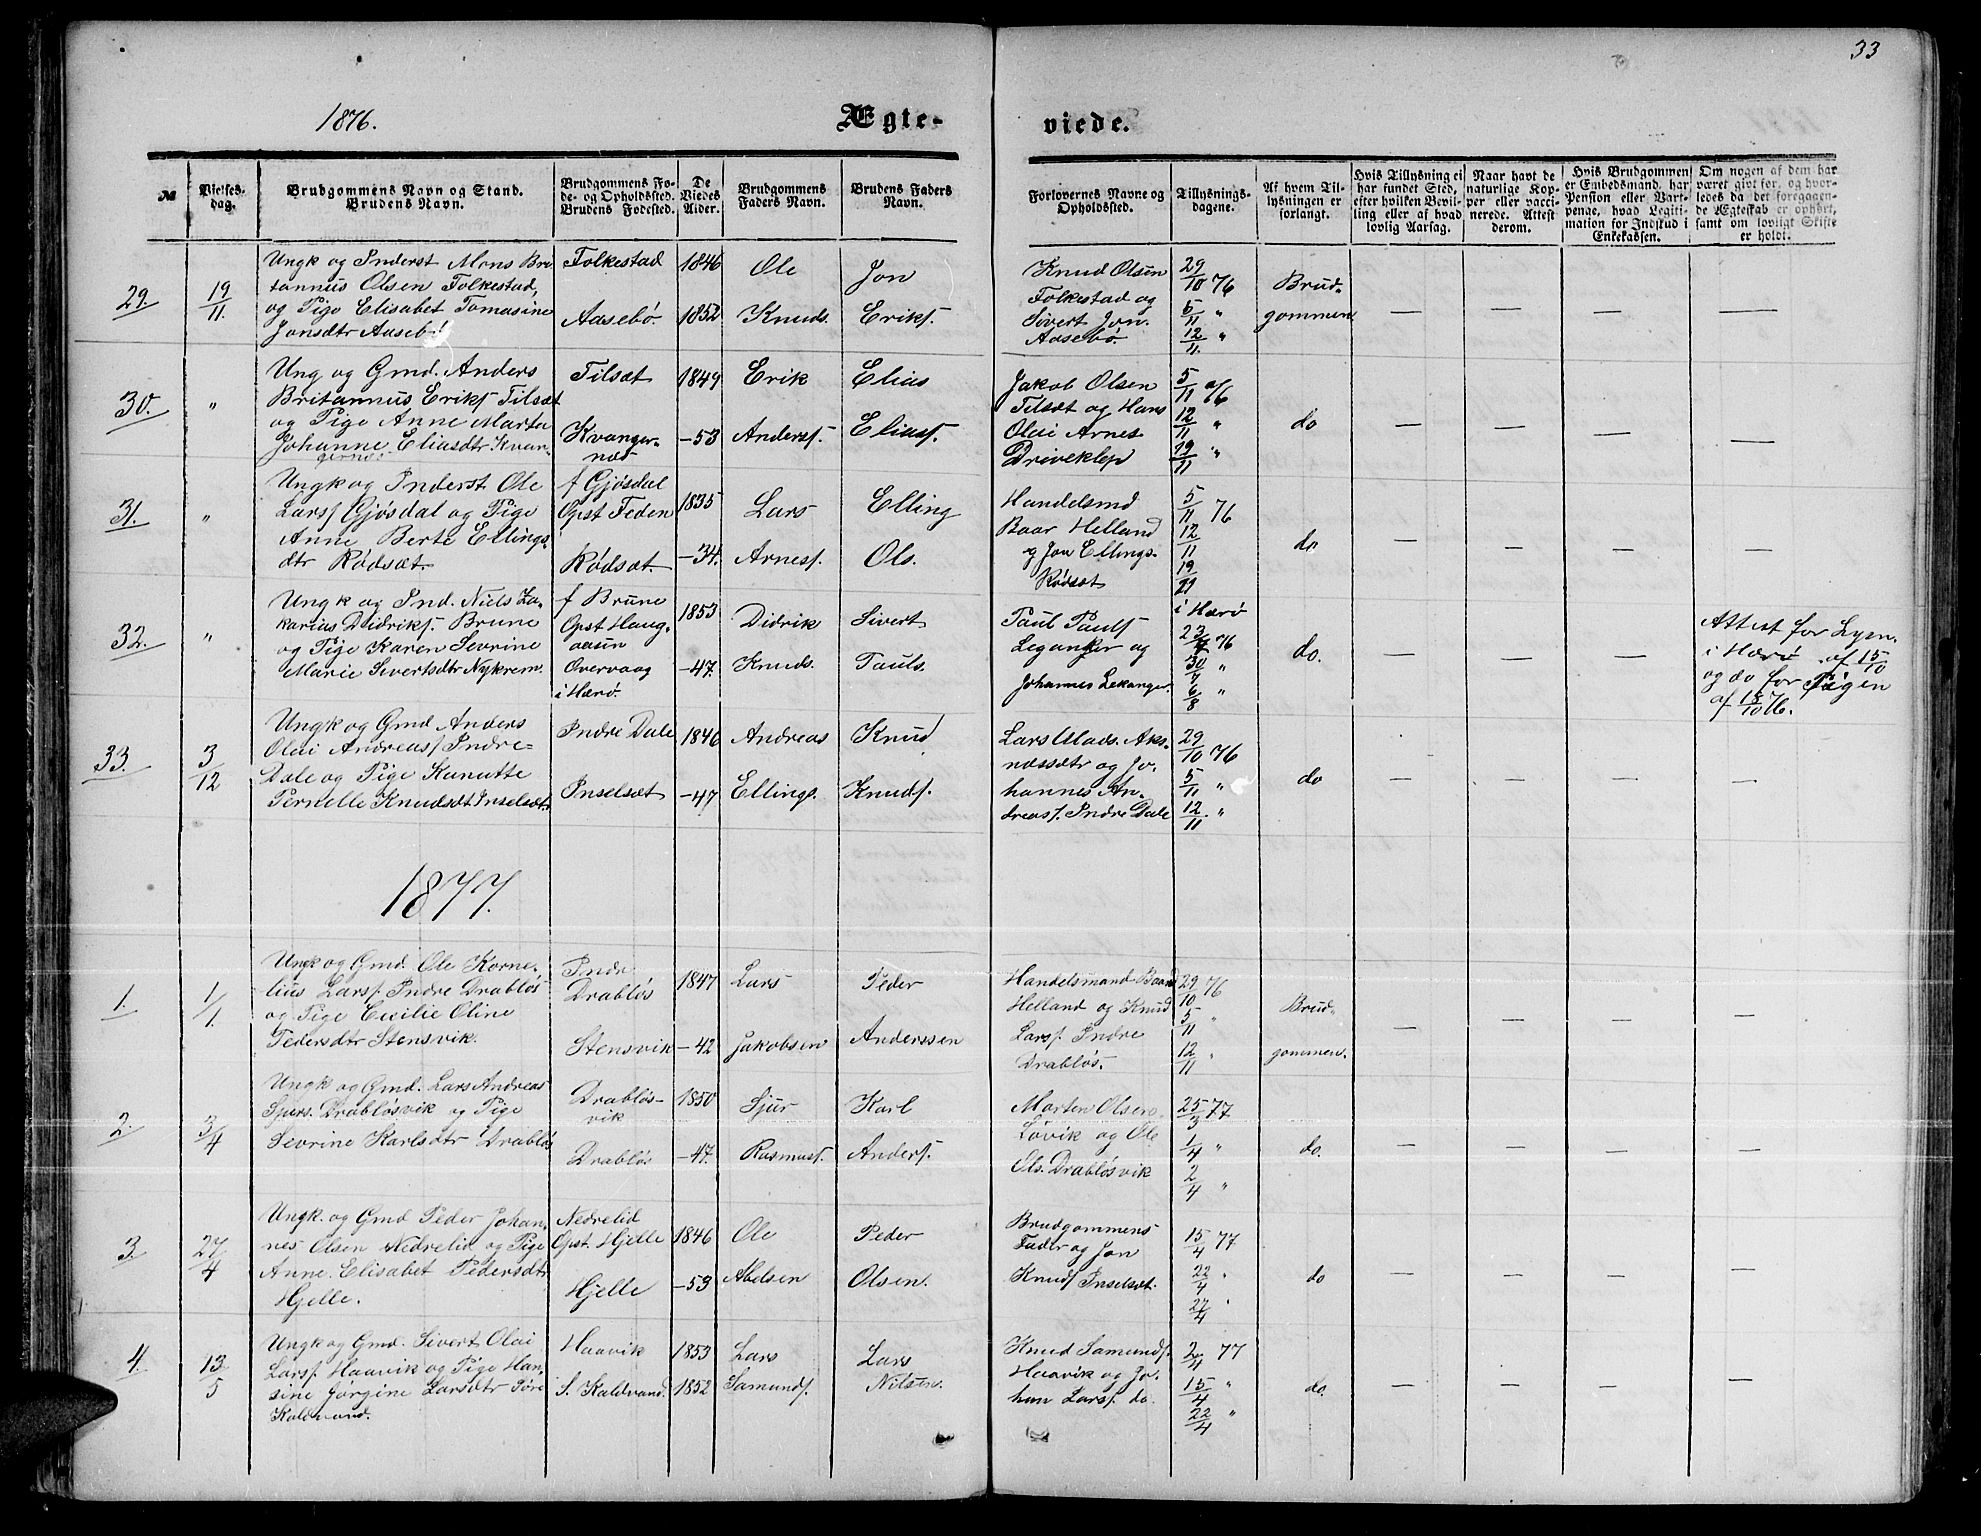 33
1876.
Ægte-
viede.
№
Vielses-
dag.
Brudgommens Navn og Stand.
Brudens Navn.
Brudgommens Fø-
de- og Opholdssted.
Brudens Fødested.
De
Viedes
Alder.
Brudgommens
Faders Navn.
Brudens Faders
Navn.
Forlovernes Navne og
Opholdssted.
Tillysnings-
dagene.
Af hvem Til-
lysningen er
forlangt.
Hvis Tillysning ei
har fundet Sted,
efter hvilken Bevil-
ling eller af hvad
lovlig Aarsag.
Naar havt de
naturlige Kop-
per eller vacci-
nerede. Attest
derom.
Hvis Brudgommen
er Embedsmand, har
Pension eller Vart-
penge, hvad Legiti-
mation for Indskud i
Enkekassen.
Om nogen af dem har
været givt før, og hvor-
ledes da det foregaaen-
de Ægteskab er ophørt,
samt om lovligt Skifte
er holdt.
29.
19/11.
Ungk og Inderst Mons Bri
tannus Olsen Folkestad,
og Pige Elisabet Tomasine
Jonsdtr Aasebö
Folkestad
Aasebö.
1846
1852
Ole
Knuds.
Jon
Eriks.
Knud Olsen
Folkestad og
Sivert Jon.
Aasebö.
29/10 76
5/11 "
12/11 "
Brud-
gommen
— — — —
30.
"
Ung og Gmd. Anders
Britannus Eriks. Tilsæt
og Pige Anne Marta
Johanne Eliasdtr Kvan-
gernes
Tilsæt
Kvanger-
næs
1849
-53
Erik
Anders.
Elias
Elias.
Jakob Olsen
Tilsæt og Hans
Olai Arnes
Driveklep
5/11 76
12/11 "
19/11 "
do
— — — —
31.
"
Ungk og Inderst Ole
Lars. Gjösdal og Pige
Anne Berte Ellings-
dtr Rödsæt.
f Gjösdal
Opst Feden
Rödsæt.
1835
-34.
Lars
Arnes.
Elling
Ols.
Handelsmd
Baar Helland
og Jon Ellings.
Rödsæt
5/11 76
12/11
19/11
do
— — — —
32.
"
Ungk og Ind. Niels Za-
karias Didriks. Brune
og Pige Karen Sevrine
Marie Sivertsdtr Nykrem.
f Brune
Opst Haug-
aasun
Overvaag
i Harö.
1853
-47.
Didrik
Knuds.
Sivert
Pauls.
Paul Pauls
Leganger og
Johannes Lekanger.
i Harö
23/7 76
30/7 "
6/8 "
do.
— — —
Attest for Lysn.
i Harö af 15/10
og do for Pigen
af 15/10 76.
33.
3/12
Ungk og Gmd Anders
Olai Andreas. Indre-
Dale og Pige Kanutte
Pernelle Knudsdt Inselsæt.
Indre Dale
Inselsæt
1846
-47
Andreas
Ellings.
Knud
Knuds.
Lars Mads. Aks-
næssætr og Jo-
hannes An-
dreas. Indre Dale
29/10 76
5/11 "
12/11 "
do
— — — —
1877.
1.
1/1.
Ungk og Gmd. Ole Korne-
lius Lars. Indre Dræblös
og Pige Cecilie Oline
Pedersdtr Stensvik.
Indr
Drablös
Stensvik
1847
-42
Lars
Jakobsen
Peder
Anderssen
Handelsmand Baard
Helland og Knud
Lars. Indre
Drablös.
29/10 76
5/11 "
12/11 "
Brud-
gommen.
— — — —
2.
3/4
Ungk og Gmd. Lars Andreas
Sjurs. Drablösvik og Pige
Sevrine Karlsdtr Drablös
Drablös-
vik
Drablös
1850
-47.
Sjur
Rasmus.
Karl
Anders.
Morten Olsen
Lövik og Ole
Ols. Drablösvik
25/3 77
1/4 "
2/4 "
do.
— — — —
3.
27/4
Ungk. og Gmd Peder Johan-
nes Olsen Nedrelid og Pige
Anne Elisabet Pedersdtr
Hjelle.
Nedrelid
Opst. Hjelle
Hjelle
1846
-53
Ole
Abelsen
Peder
Olsen.
Brudgommens
Fader og Jon
Knuds Inselsæt.
15/4 77
22/4 "
27/4 "
do
— — — —
4.
13/5
Ungk og Gmd. Sivert Olai
Lars. Haavik og Pige Han-
sine Jorgine Larsdtr Söre
Kaldvand.
Haavik
S. Kaldvand.
1853
1852
Lars
Samund.
Lars
Nilsen.
Knud Samunds.
Haavik og Jo-
han Lars. do.
2/4 77
15/4 "
22/4 "
do.
— — — —